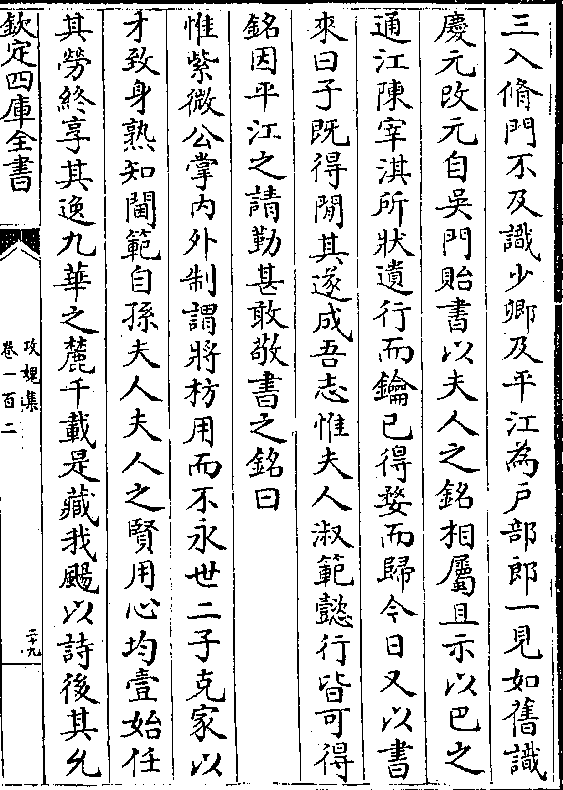 三入脩門不及識少卿及平江為戸部郎一見如舊識
慶元改元自吳門貽書以夫人之銘相屬且示以巴之
通江陳宰淇所狀遺行而鑰已得婺而歸今日又以書
來曰子既得閒其遂成吾志惟夫人淑範懿行皆可得
銘因平江之請勤甚敢敬書之銘曰
惟紫微公掌内外制謂將枋用而不永世二子克家以
才致身熟知閫範自孫夫人夫人之賢用心均壹始任
其勞終享其逸九華之麓千載是藏我颺以詩後其允
欽定四庫全書
攻媿集
卷一百二
二十九